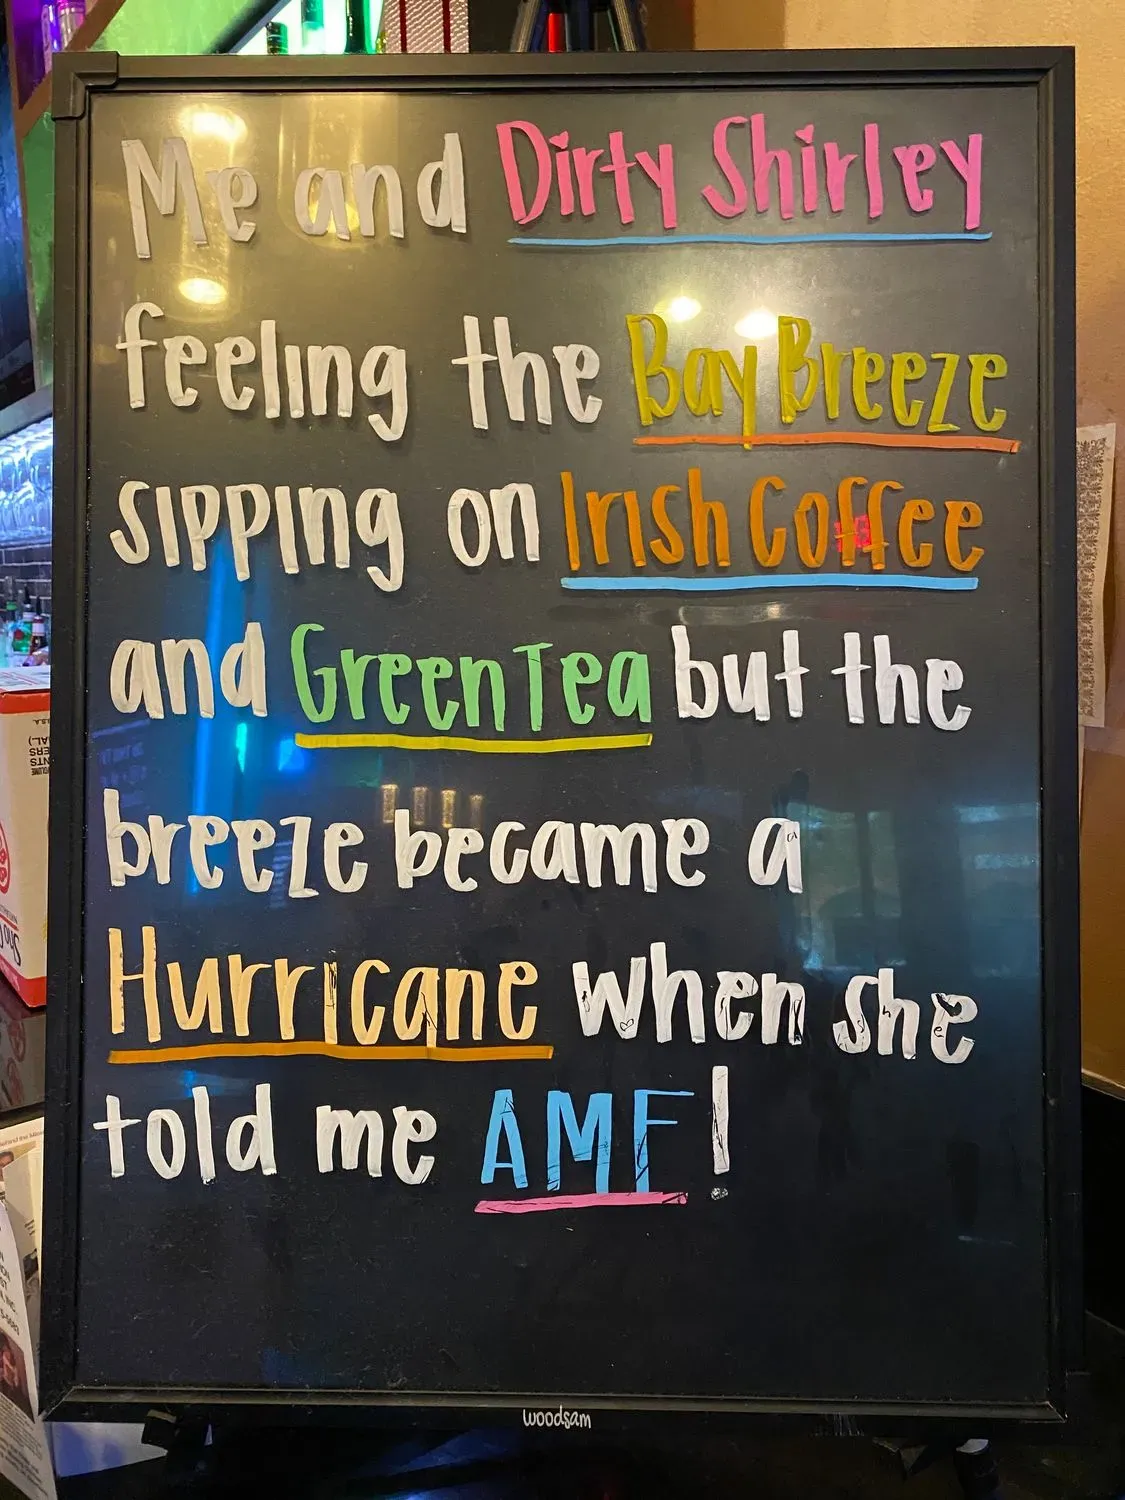 Me and Dirty Shirley
feeling the Bay Breeze
sipping on Irish Coffee
and Green Tea but the
breeze became a
Hurricane when she
told me AMF!
woodsam